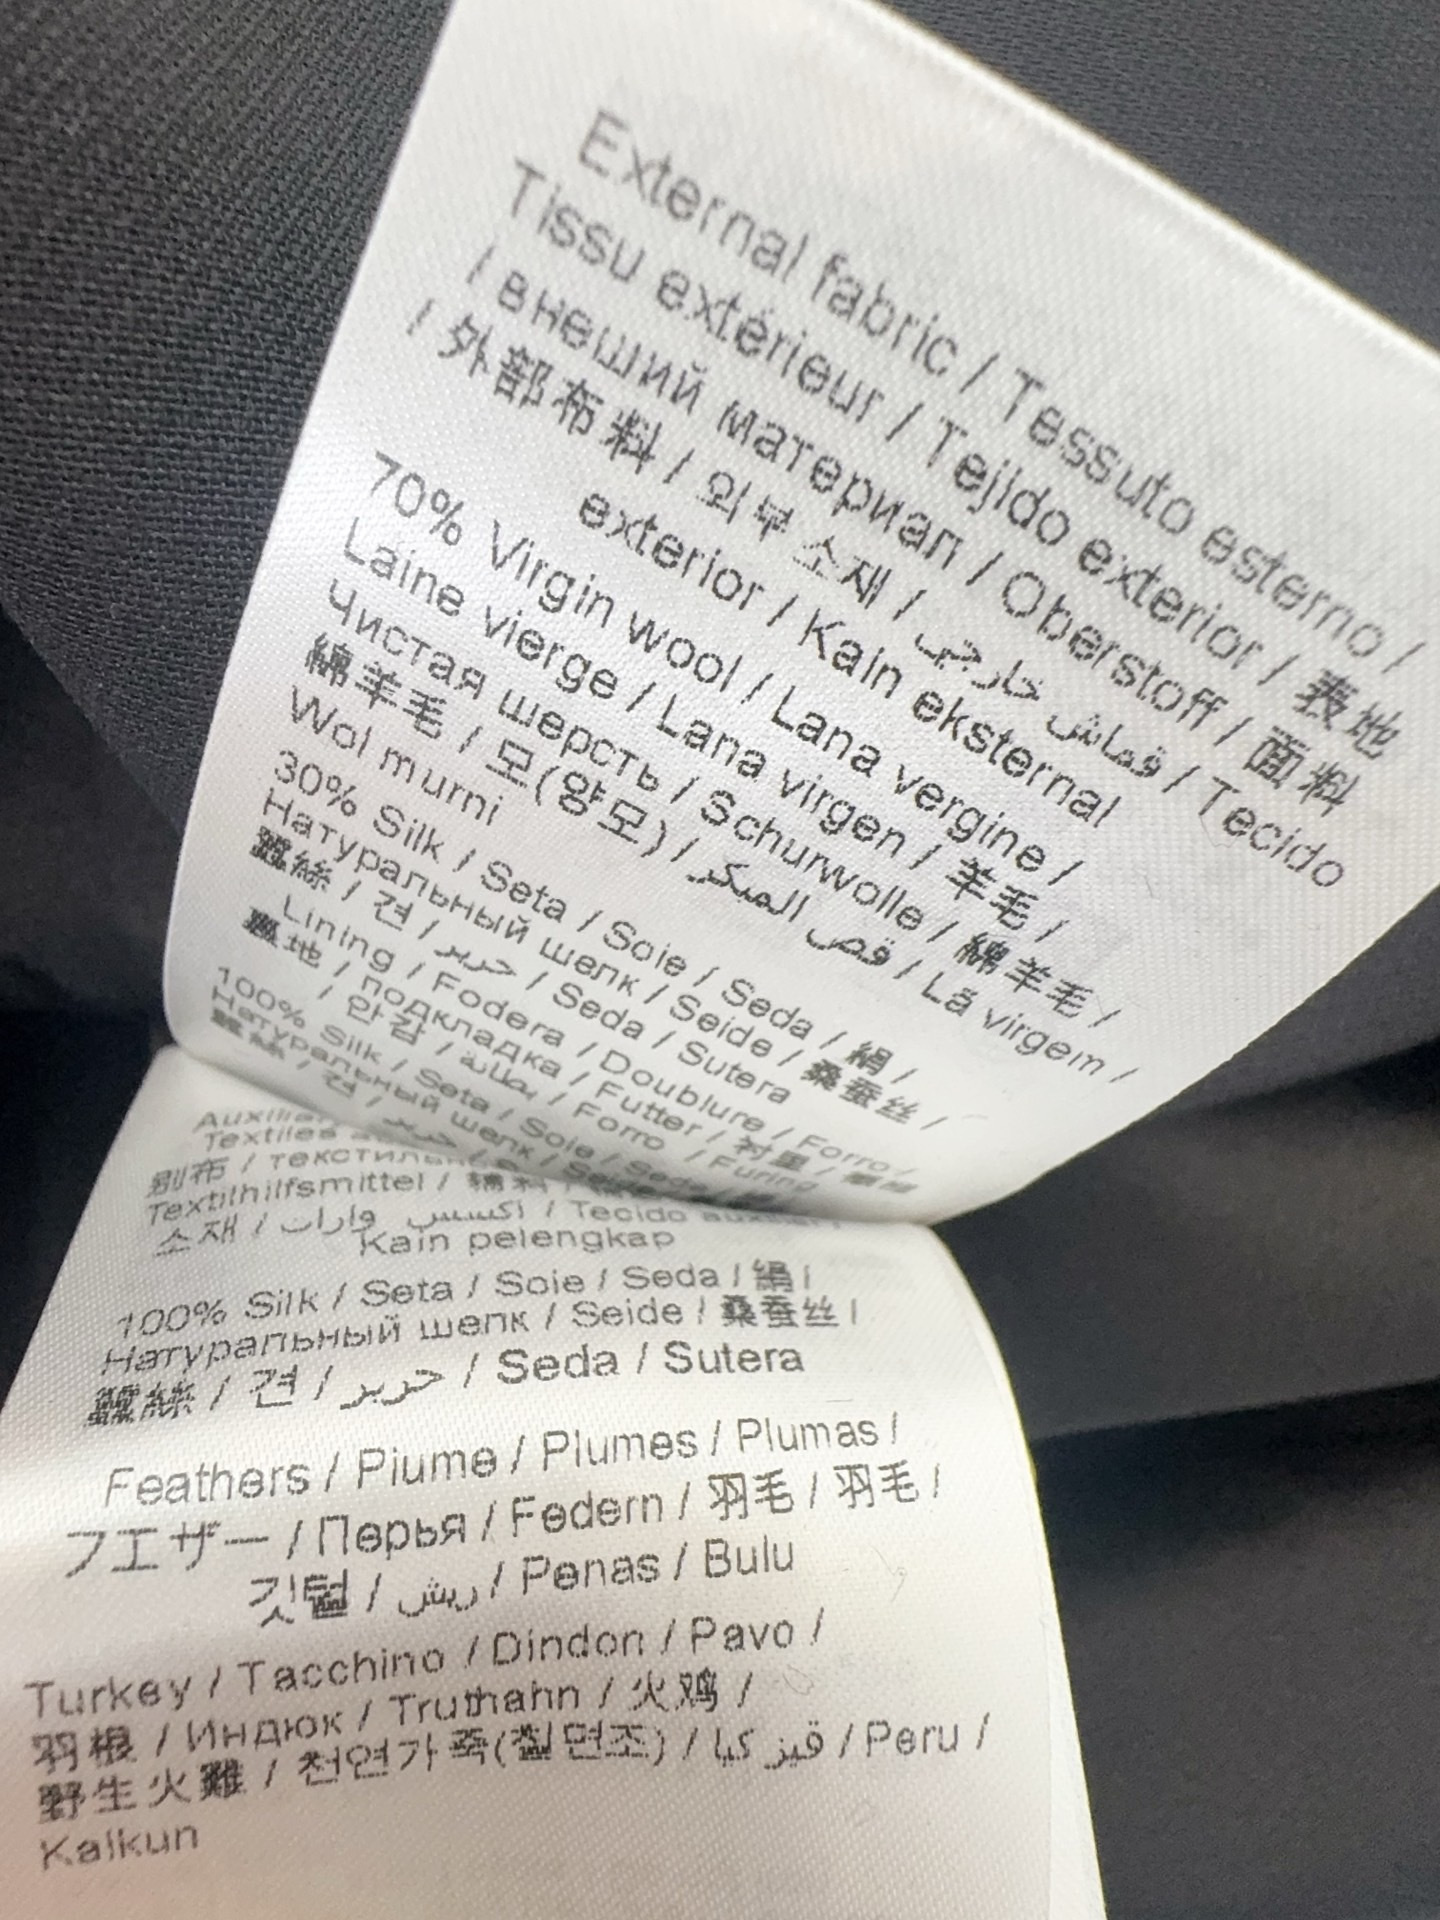 External fabric / Tessuto esterno /
Tissu extérieur / Tejido exterior / 表地
/ внеший материал / Oberstoff / 面料
/ 外部布料 / 외부 소재 / قماش خارجي / Tecido
exterior / Kain eksternal
70% Virgin wool / Lana vergine /
Laine vierge / Lana virgen / 羊毛 /
Чистая шерсть / Schurwolle / 綿羊毛 /
綿羊毛 / 모(양모) / قص المبكر / Lã virgem /
Wol murni
30% Silk / Seta / Soie / Seda / 絹 /
Натуральный шелк / Seide / 桑蚕丝 /
蠶絲 / 견 / حرير / Seda / Sutera
Lining / Fodera / Doublure / Forro /
裏地 / подкладка / Futter / 衬里 /
/ 안감 / بطانة / Forro / Furing
100% Silk / Seta / Soie / Seda /
Натуральный шелк / Seide
蠶絲 / 견 / حرير
Textiles
别布 /
Textilhilfsmittel / 辅料
소재 / اكسسوارات / Tecido auxiliar /
Kain pelengkap
100% Silk / Seta / Soie / Seda / 絹 /
Натуральный шелк / Seide / 桑蚕丝 /
蠶絲 / 견 / حرير / Seda / Sutera
Feathers / Piume / Plumes / Plumas /
フエザー / Перья / Federn / 羽毛 / 羽毛 /
깃털 / ريش / Penas / Bulu
Turkey / Tacchino / Dindon / Pavo /
羽根 / Индюк / Truthahn / 火鸡 /
野生火雞 / 천연가죽(칠면조) / قيز كيا / Peru /
Kalkun